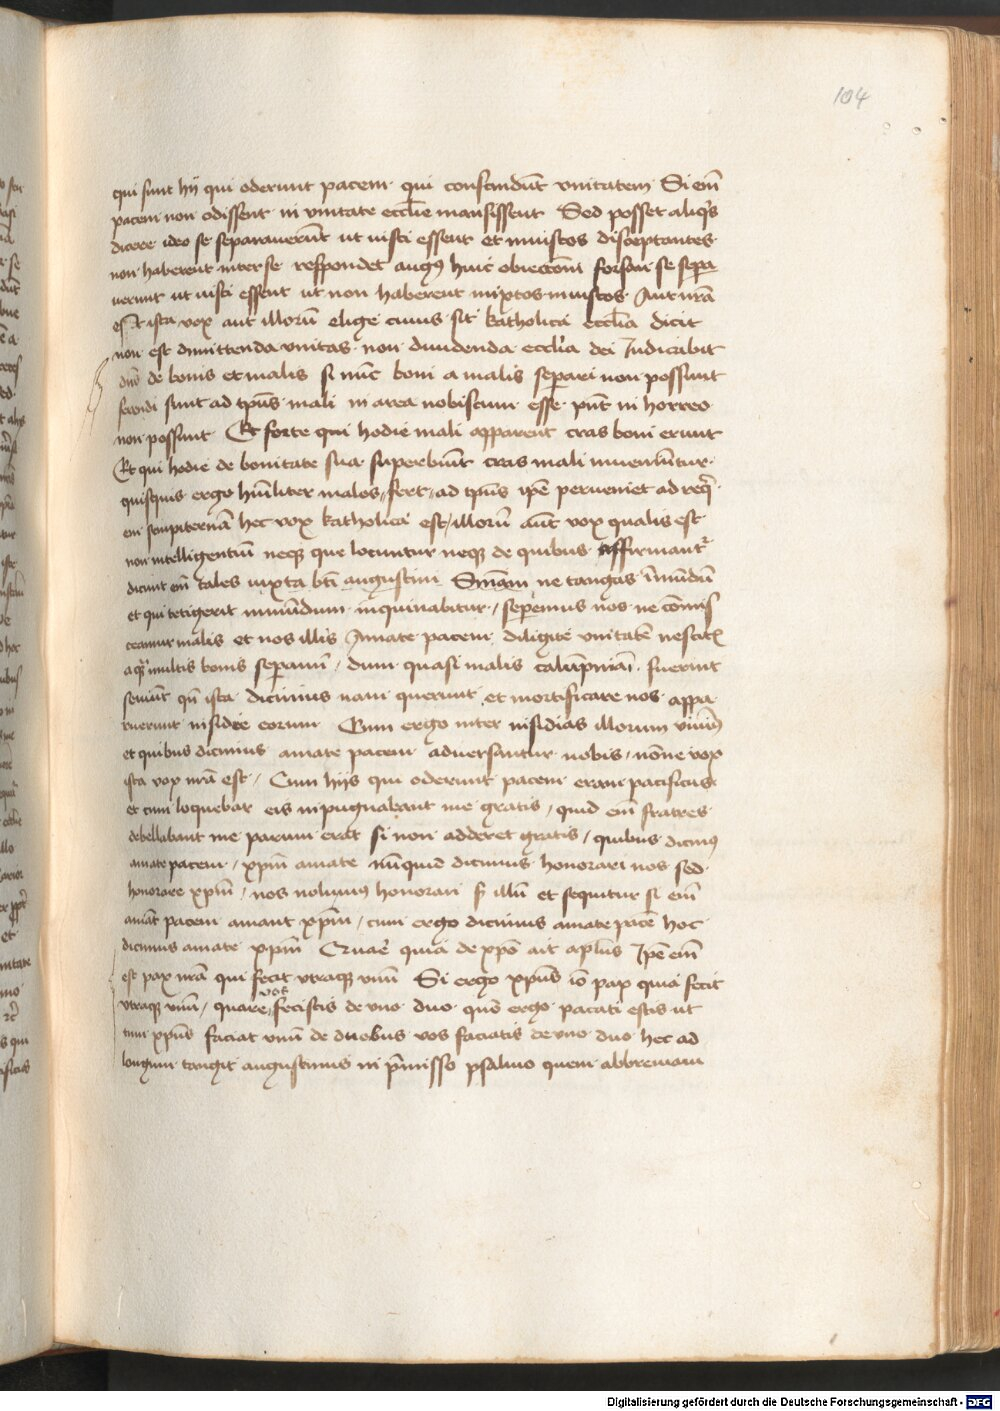 104
qui sunt hij qui oderunt pacem qui conscindūt vnitatem Si em̄
pacem non odissent in vnitate eccl̄ie mansissent Sed posset aliq̄s
dicere ideo se separauerūt ut iusti essent et iniustos disceptantes
non haberent inter se respondet augꝯ huic obieccōni forsan se sepa
uerunt ut iusti essent ut non haberent mixtos iniustos Aut nr̄a
est ista vox aut illorū elige cuius sit katholica eccl̄ia dicit
non est dimittenda vnitas non diuidenda eccl̄ia dei Iudicabit
de bonis et malis si nūc boni a malis separi non possunt
ferendi sunt ad tp̄us mali in area nobiscum esse pn̄t in horreo
non possunt Et forte qui hodie mali apparent cras boni erunt
Et qui hodie de bonitate sua superbiūt cras mali inuenīutur
quisquis ergo hūiliter malos fert ad tp̄us ip̄e perueniet ad req̄
em sempiternā hec vox katholica est illorū aūt vox qualis est
non intelligentiū neqꝫ que locuntur neqꝫ de quibus affirmant
dicunt em̄ tales iuxta bt̄i augustini Sm̄am ne tangas īmūdū
et qui tetigerit inmūdum inquinabitur / seperemus nos ne cōmis
ceamur malis et nos illis Amate pacem diligite vnitatē nescitis
a qꝫ multis bonis separamī / dum quasi malis calūpniāi fuerint
seuiūt qn̄ ista dicimus nam querunt et mortificare nos appa
ruerunt insidie eorum Cum ergo inter insidias illorum viuīꝯ
et quibus dicimus amate pacem aduersantur nobis / nōne vox
ista vox nr̄a est / Cum hijs qui oderunt pacem eram pacificus
et cum loquebar eis inpugnabant me gratis / quid em̄ fratres
debellabant me parum erat si non adderet gratis / quibus dicimꝯ
amate pacem / xp̄m amate nūquid dicimus honorari nos sed
honorare xp̄m / nos nolumꝯ honorari sꝫ illū et sequitur si em̄
amāt pacem amant xp̄m / cum ergo dicimus amate pacē hoc
dicimus amate xp̄m Quare quia de xp̄o ait ap̄lus Ip̄e em̄
est pax nr̄a qui fecit vtraqꝫ vnū Si ergo xp̄us iō pax quia fecit
vos
vtraqꝫ vnū / quare fecistis de vno duo quō ergo pacati estis ut
cum xp̄us faciat vnū de duobus vos faciatis de vno duo hec ad
longum tangit augustinus in p̄misso psalmo quem abbreuiaui
Digitalisierung gefördert durch die Deutsche Forschungsgemeinschaft - DFG